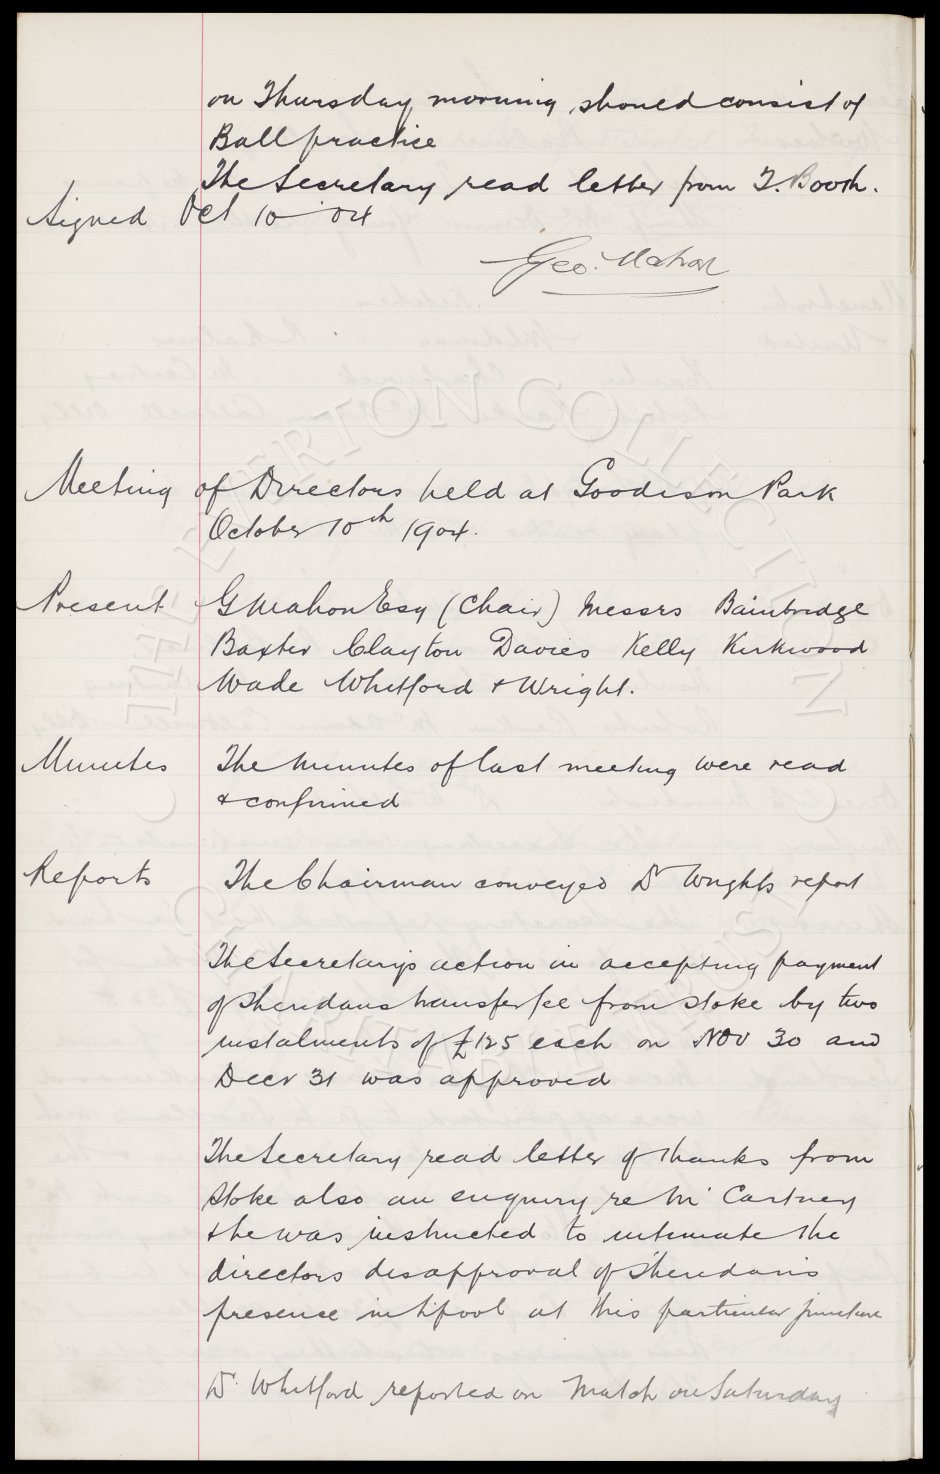 on Thursday morning should consist of
Ball practice
The Secretary read letter from T. Booth.
Signed Oct 10 04
Geo. Mahon
Meeting of Directors held at Goodison Park
October 10th 1904.
Present G Mahon Esq (Chair) Messrs Bainbridge
Baxter Clayton Davies Kelly Kirkwood
Wade Whitford & Wright.
Minutes The Minutes of last meeting were read
& confirmed
Reports The Chairman conveyed Dr Wrights report
The Secretary's action in accepting payment
of Sheridans transfer fee from Stoke by two
instalments of £125 each on Nov 30 and
Decr 31 was approved
The Secretary read letter of thanks from
Stoke also an enquiry re Mc Cartney
& he was instructed to intimate the
directors disapproval of Sheridan's
presence in L'pool at this particular juncture
Dr Whitford reported on Match on Saturday
THE EVERTON COLLECTION